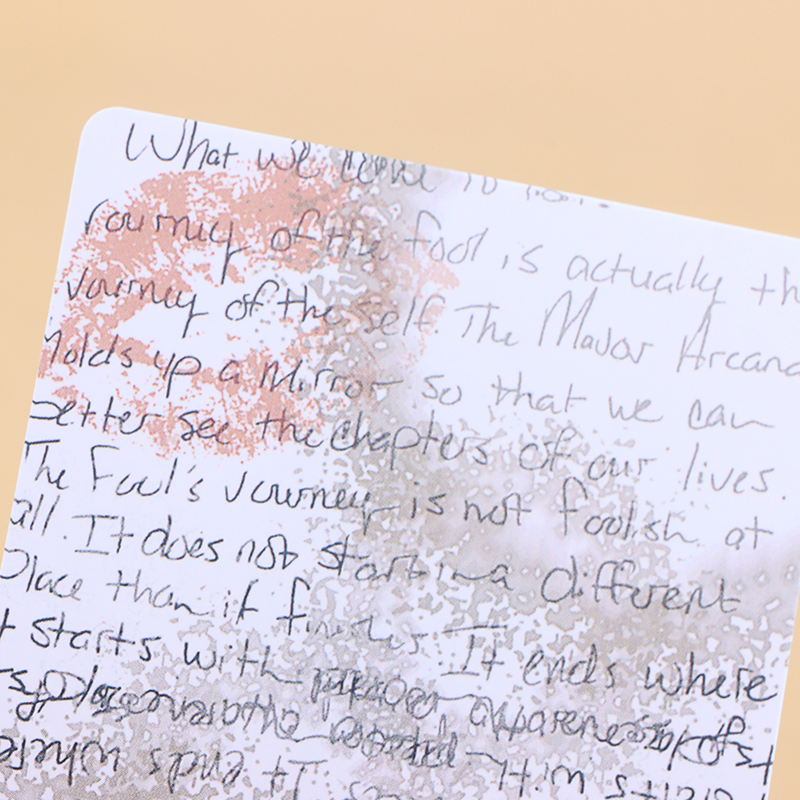 What we
Journey of the fool is actually th
Journey of the self. The Major Arcana
holds up a mirror so that we can
better see the chapters of our lives.
The Fool's Journey is not foolish at
all. It does not start in a different
Place than it finishes. It ends where
t starts with
It ends where